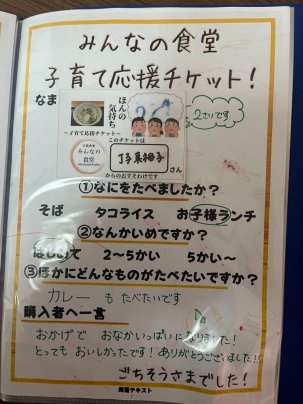 みんなの食堂
子育て応援チケット!
なまえ
2さいです
ほんの
気持ち
～子育て応援チケット～
このチケットは
みんなの
食堂
さん
からのおすそわけです
①なにをたべましたか?
そば タコライス お子様ランチ
②なんかいめですか?
はじめて 2～5かい 5かい～
③ほかにどんなものがたべたいですか?
カレー も たべたいです
購入者へ一言
おかげで おなかいっぱいになりました!
とっても おいしかったです! ありがとうございました!!
ごちそうさまでした!
段落テキスト